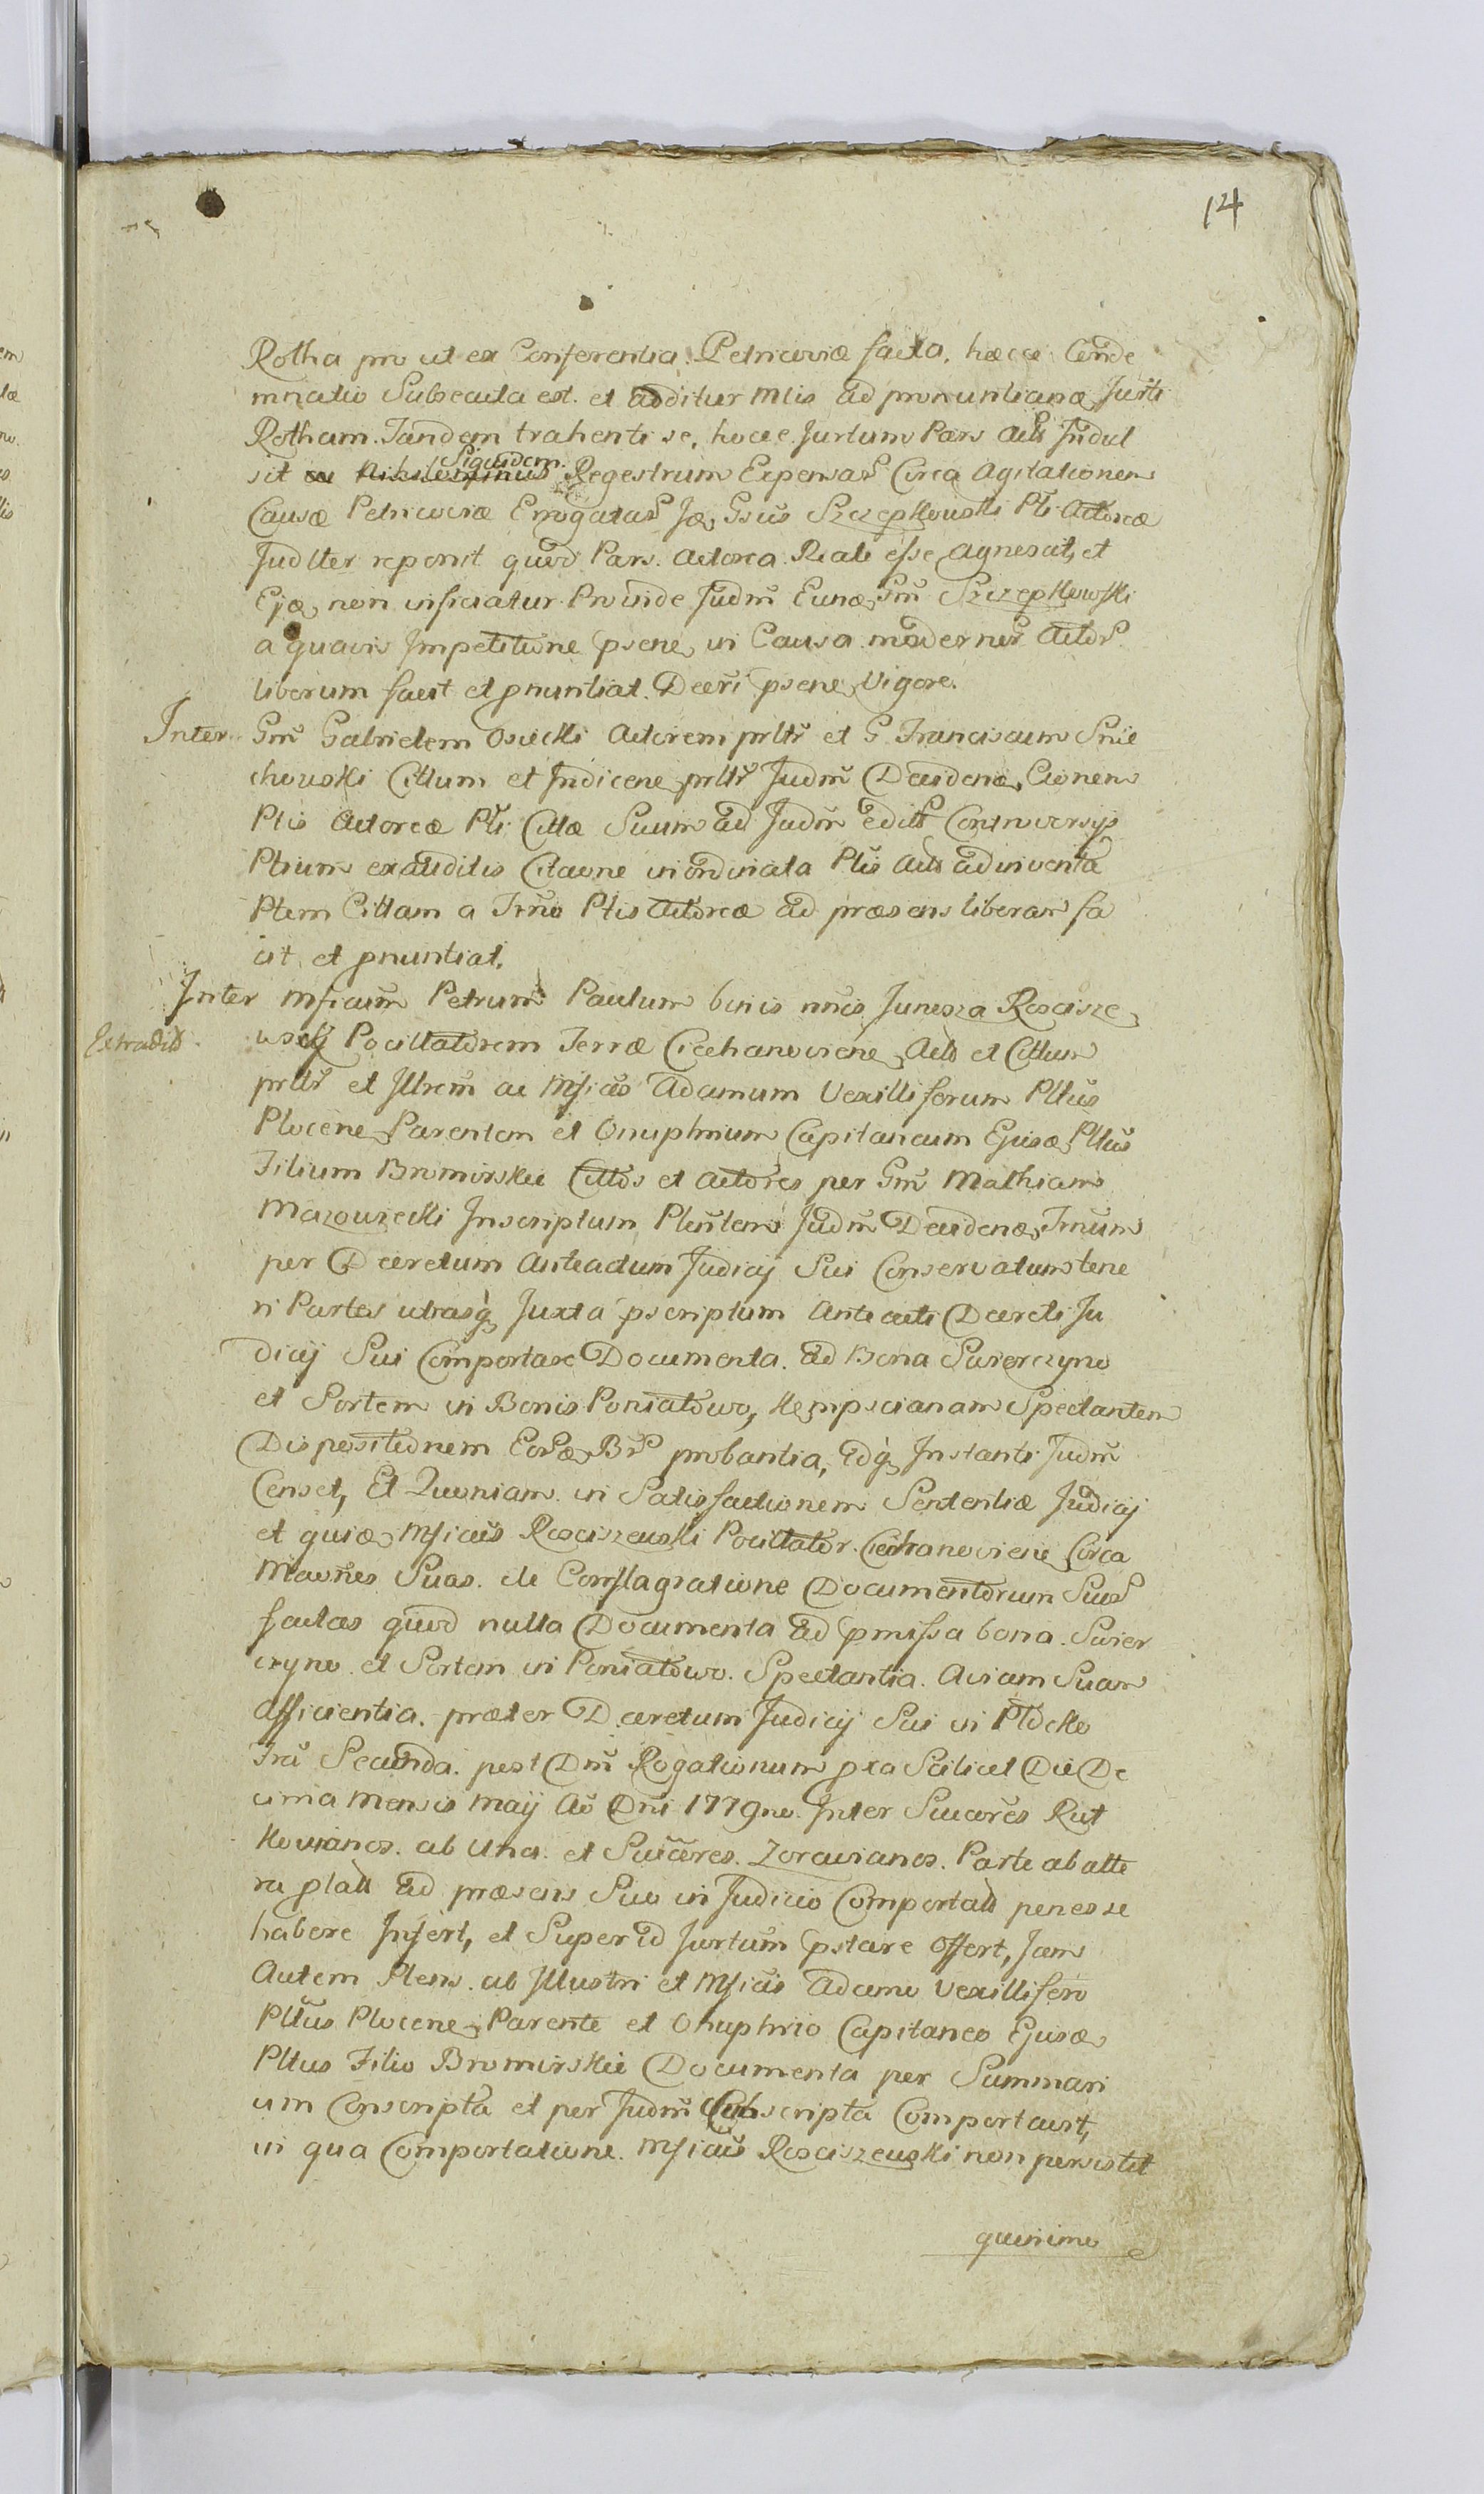 14
Rotha pro ut ex Conferentia Petricoviæ facta, hæcce Conde
mnatio Subsecuta est. et additur Mlis ad pronuntianð Jurti
Rotham. Tandem trahenti se, hocce Jurtum Pars Acts Indul
sit ac nihilominus Siquidem Regestrum Expensar̃ Circa Agitationem
Causæ Petricoviæ Errogatar̃ Gsus Szczepkouski Pti Actoreæ
Judlter reponit quod Pars. Actorea Reale esse agnescit, et
non inficiatur. Proinde Judm̃ Gm̃ Szczepkowski
a quavis Impetitione psene in Causa moderner̃ Actor̃
liberum facit et pnuntiat. Decri psene Vigore.
Inter Gm̃ Gabrielem Osiecki Actorem prltr̃ et G. Franciscum Snie
chouski Cittum et Indicene prltr̃ Judm̃ Decidenð, Cionem
Ptis Actoreæ Pti Cittæ Suum ad Judm̃ edits Controversijs
Ptium exauditis Citaone inordinata Ptis Acts adinventa
Ptem Cittam a Trno Ptis Actoreæ ad præsens liberam fa
cit et pnuntiat.
Inter Mficum̃ Petrum Paulum binis nñis Junosza Roscisze
Extradit.
wski Pocillatorem Terræ Ciechanoviene, Acts et Cittum
prltr̃ et Jllrem̃ ac Mficũs Adamum Vexilliferum Pltũs
Plocene Parentem et Onuphrium Capitaneum Ejusð, Pltũs
Filium Bromirskie Cittos et Actores per Gm̃ Mathiam
Mazowiecki Inscriptum Plentem Judm̃ Decidenð, Trnum
per Decretum Anteactum Judicij Sui Conservatum tene
ri Partes utrasq̃ Juxta pscriptum Anteacti Decreti Ju
dicij Sui Comportare Documenta. ad Bona Swierczyno
et Sortem in Bonis Poniatowo, Kempscianam Spectantem
Dispositionem Eorð, Br̃ probantia, idq̃ Instanti Judm̃
Censet, Et Quoniam in Satisfactionem Sententiæ Judicij
et quið Mficus Rosciszeuski Pocillator. Ciechanoviene Circa
Maones Suas. de Conflagratione Documentorum Suor̃
factas quod nulla Documenta ad pmissa bona. Swier
czyno et Sortem in Poniatowo. Spectantia. Aviam Suam
afficientia. præter Decretum Judicij Sui in Plocko
Fria Secunda. post Dm̃ Rogationum pxa Scilicet Die De
cima Mensis Maij Ao Dni 1779no. Inter Succores Rut
kovianos. ab Una. et Succeres. Zoravianos. Parte ab alte
ra plats ad præsens Suo in Judicio Comportats penes se
habere Infert, et Super id Jurtum pstare offert, Jam
Autem Plens. ab Illustri et Mficis Adamo Vexillifero
Pltũs Plocene, Parente et Onuphrio Capitaneo Ejusð
Pltus Filio Bromirskie Documenta per Summari
um Conscripta et per Judm̃ Subscripta Comportavit,
in qua Comportatione. Mficus Rosciszeuski non persistit
quinimo